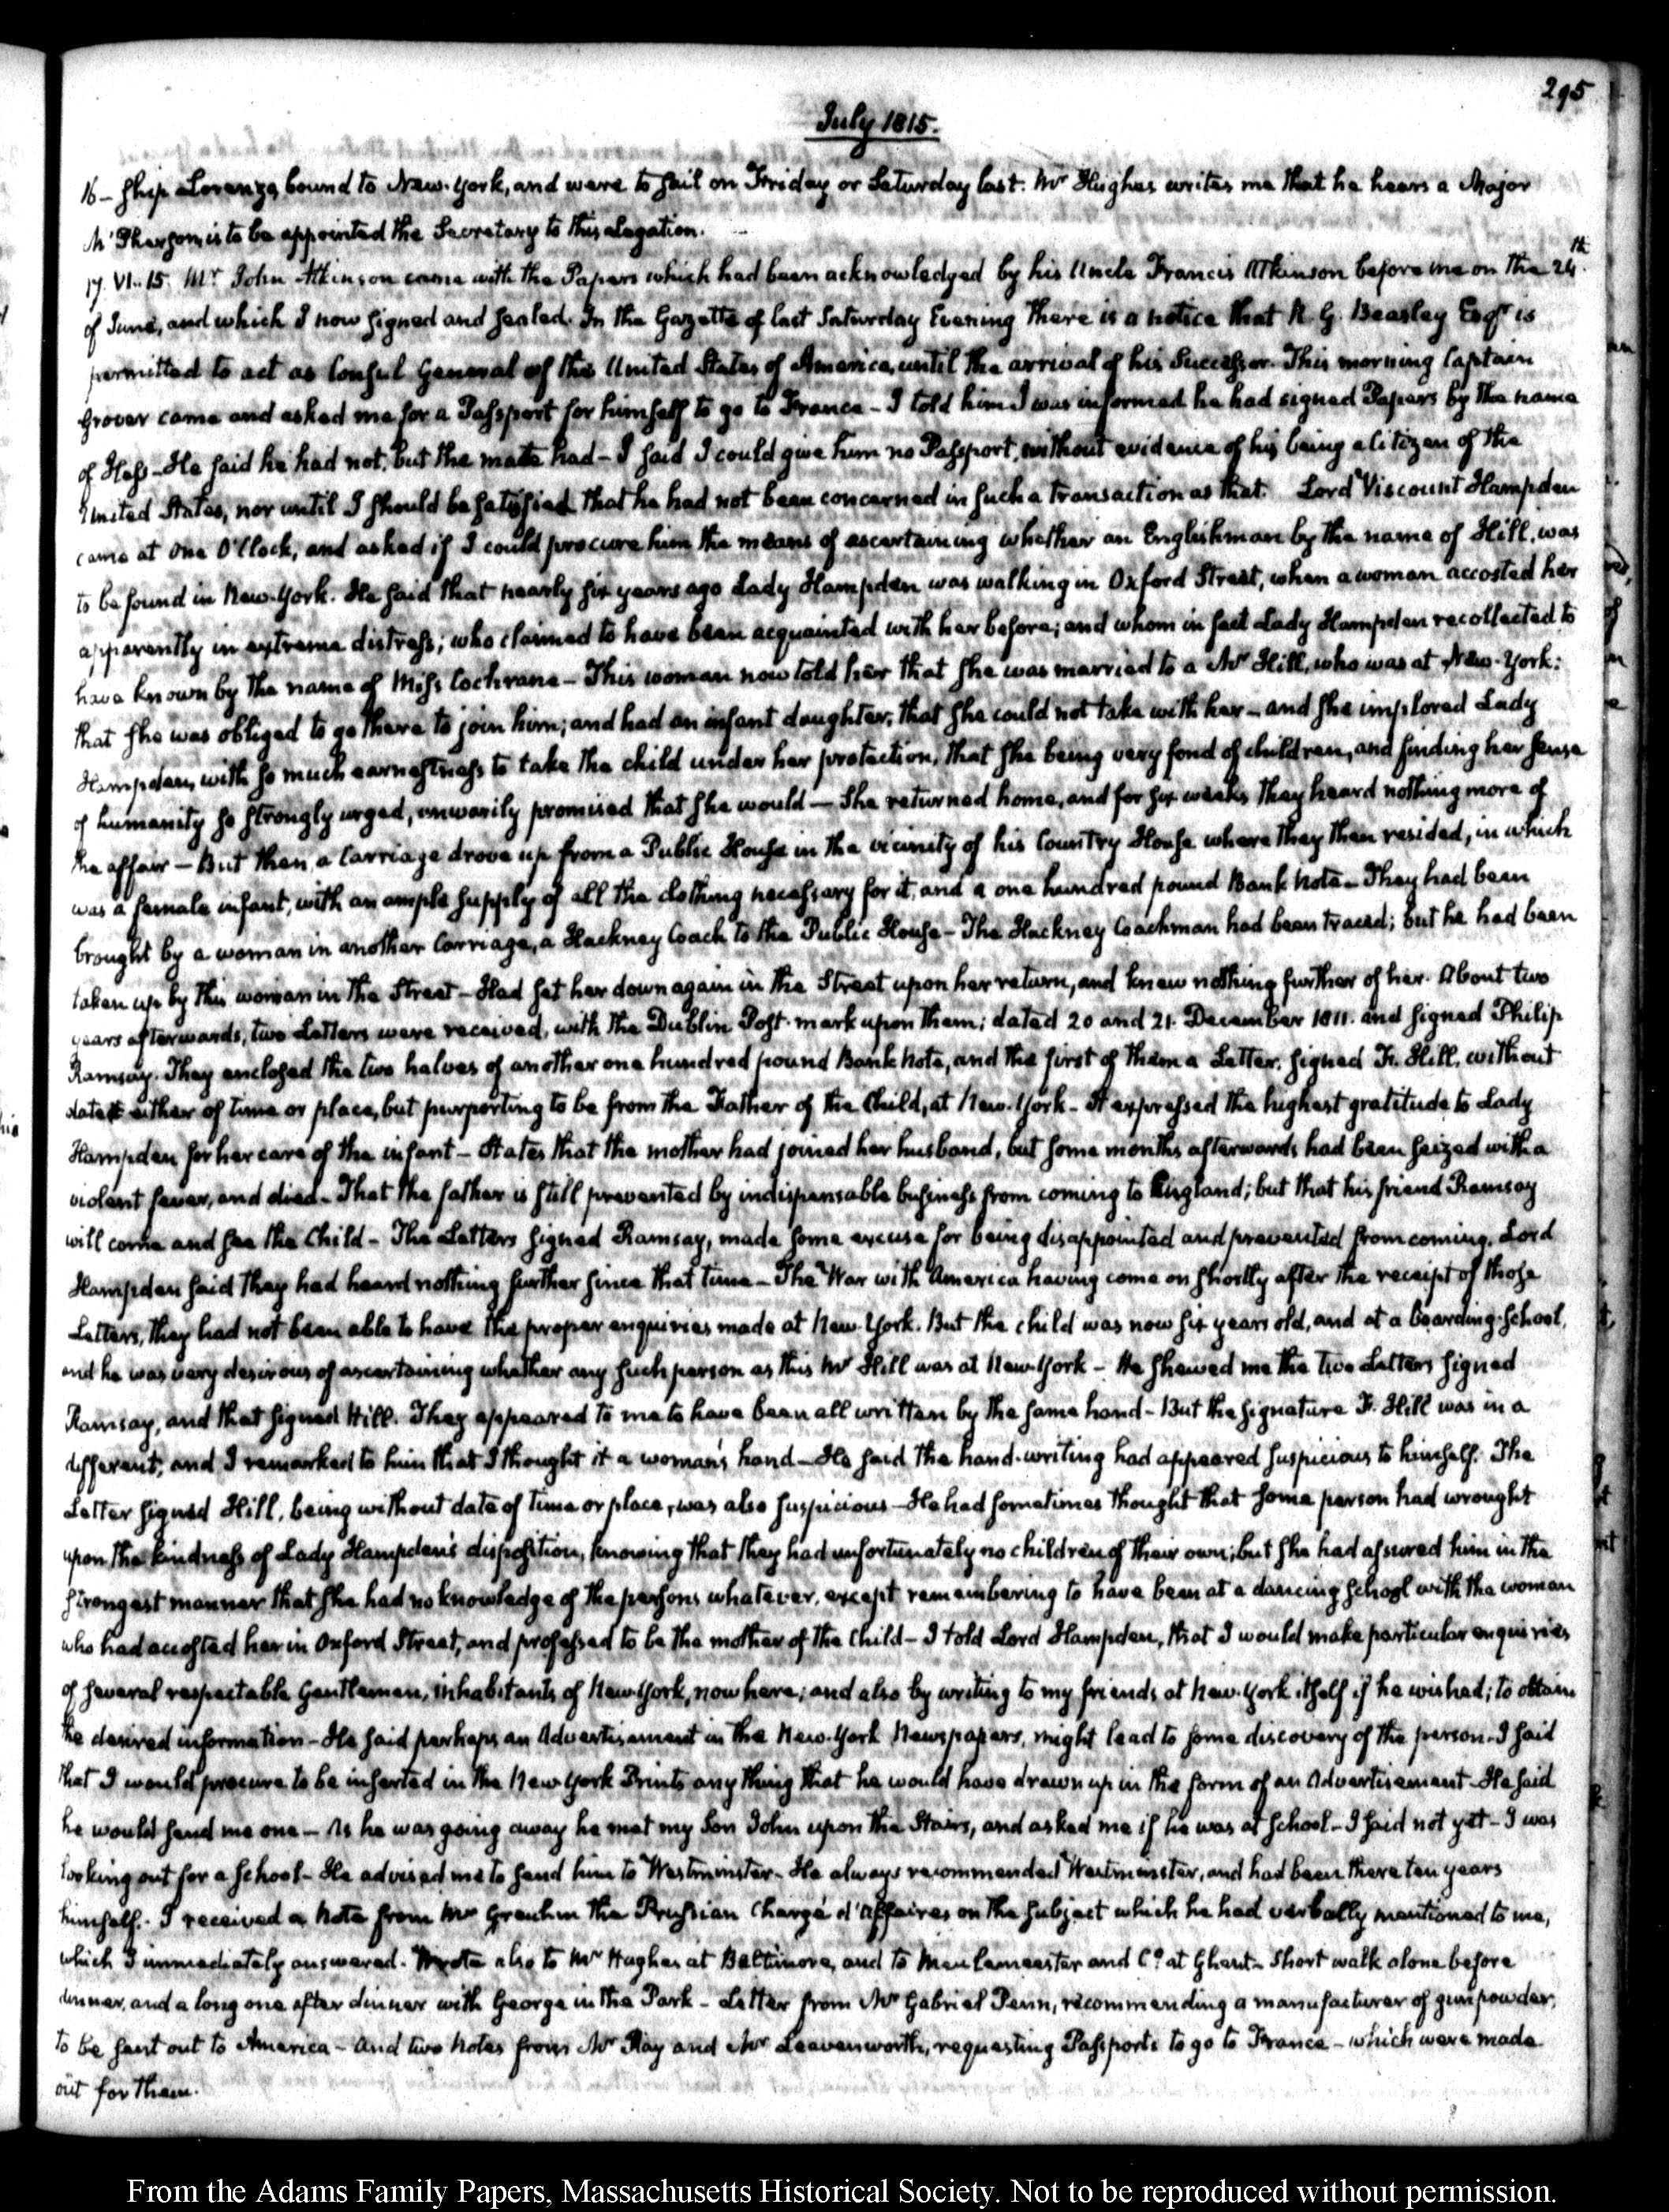 295
July 1815.
16 - Ship Lorenzo, bound to New-York, and were to sail on Friday or Saturday last. Mr Hughes writes me that he hears a Major
is to be appointed the Secretary to this Legation.
17. VI..15. Mr John Atkinson came with the Papers which had been acknowledged by his Uncle Francis Atkinson before me on the 24th
of June, and which I now signed and sealed. In the Gazette of last Saturday Evening there is a notice that R. G. Beasley Esqr is
permitted to act as Consul General of the United States of America, until the arrival of his Successor. This morning Captain
Grover came and asked me for a Passport for himself to go to France - I told him I was informed he had signed Papers by the name
of Hess - He said he had not, but the mate had - I said I could give him no Passport, without evidence of his being a Citizen of the
United States, nor until I should be satisfied that he had not been concerned in such a transaction as that. Lord Viscount Hampden
came at one O'Clock, and asked if I could procure him the means of ascertaining whether an Englishman by the name of Hill, was
to be found in New-York. He said that nearly six years ago Lady Hampden was walking in Oxford Street, when a woman accosted her
apparently in extreme distress; who claimed to have been acquainted with her before; and whom in fact Lady Hampden recollected to
have known by the name of Miss Cochrane - This woman now told her that she was married to a Mr Hill, who was at New-York:
that she was obliged to go there to join him; and had an infant daughter, that she could not take with her - and she implored Lady
Hampden, with so much earnestness to take the child under her protection, that she being very fond of children, and finding her sense
of humanity so strongly urged, unwarily promised that she would - She returned home, and for six weeks they heard nothing more of
the affair - But then a Carriage drove up from a Public House in the vicinity of his Country House where they then resided, in which
was a female infant, with an ample supply of all the clothing necessary for it, and a one hundred pound Bank note - They had been
brought by a woman in another Carriage, a Hackney Coach to the Public House - The Hackney Coachman had been traced; but he had been
taken up by this woman in the Street - Had set her down again in the Street upon her return, and knew nothing further of her. About two
years afterwards, two Letters were received, with the Dublin Post-mark upon them; dated 20 and 21. December 1811. and signed Philip
Ramsay. They enclosed the two halves of another one hundred pound Bank Note, and the first of them a Letter, signed F. Hill, without
date either of time or place, but purporting to be from the Father of the Child, at New-York - It expressed the highest gratitude to Lady
Hampden for her care of the infant - States that the mother had joined her husband, but some months afterwards had been seized with a
violent fever, and died - That the father is still prevented by indispensable business from coming to England; but that his friend Ramsay
will come and see the Child - The Letters signed Ramsay, made some excuse for being disappointed and prevented from coming. Lord
Hampden said they had heard nothing further since that time - The War with America having come on shortly after the receipt of those
Letters, they had not been able to have the proper enquiries made at New-York. But the child was now six years old, and at a boarding-school,
and he was very desirous of ascertaining whether any such person as this Mr Hill was at New-York - He shewed me the two Letters signed
Ramsay, and that signed Hill. They appeared to me to have been all written by the same hand - But the signature F. Hill was in a
different; and I remarked to him that I thought it a woman's hand - He said the hand-writing had appeared suspicious to himself. The
Letter signed Hill, being without date of time or place, was also suspicious - He had sometimes thought that some person had wrought
upon the kindness of Lady Hampden's disposition, knowing that they had unfortunately no children of their own; but she had assured him in the
strongest manner that she had no knowledge of the persons whatever, except remembering to have been at a dancing school with the woman
who had accosted her in Oxford Street, and professed to be the mother of the Child - I told Lord Hampden, that I would make particular enquiries
of several respectable Gentlemen, inhabitants of New-York, now here; and also by writing to my friends at New-York itself if he wished; to obtain
the desired information - He said perhaps an Advertisement in the New-York Newspapers, might lead to some discovery of the person - I said
that I would procure to be inserted in the New-York Prints any thing that he would have drawn up in the form of an Advertisement - He said
he would send me one - As he was going away he met my Son John upon the Stairs, and asked me if he was at school - I said not yet - I was
looking out for a School - He advised me to send him to Westminster - He always recommended Westminster, and had been there ten years
himself. I received a Note from Mr Greuhm the Prussian Chargé d'affaires on the subject which he had verbally mentioned to me,
which I immediately answered. Wrote also to Mr Hughes at Baltimore, and to and Co. at Ghent - Short walk alone before
dinner, and a long one after dinner with George in the Park - Letter from Mr Gabriel Penn, recommending a manufacturer of gunpowder,
to be sent out to America - And two Notes from Mr Ray and Mr Leavenworth, requesting Passports to go to France - which were made
out for them.
From the Adams Family Papers, Massachusetts Historical Society. Not to be reproduced without permission.